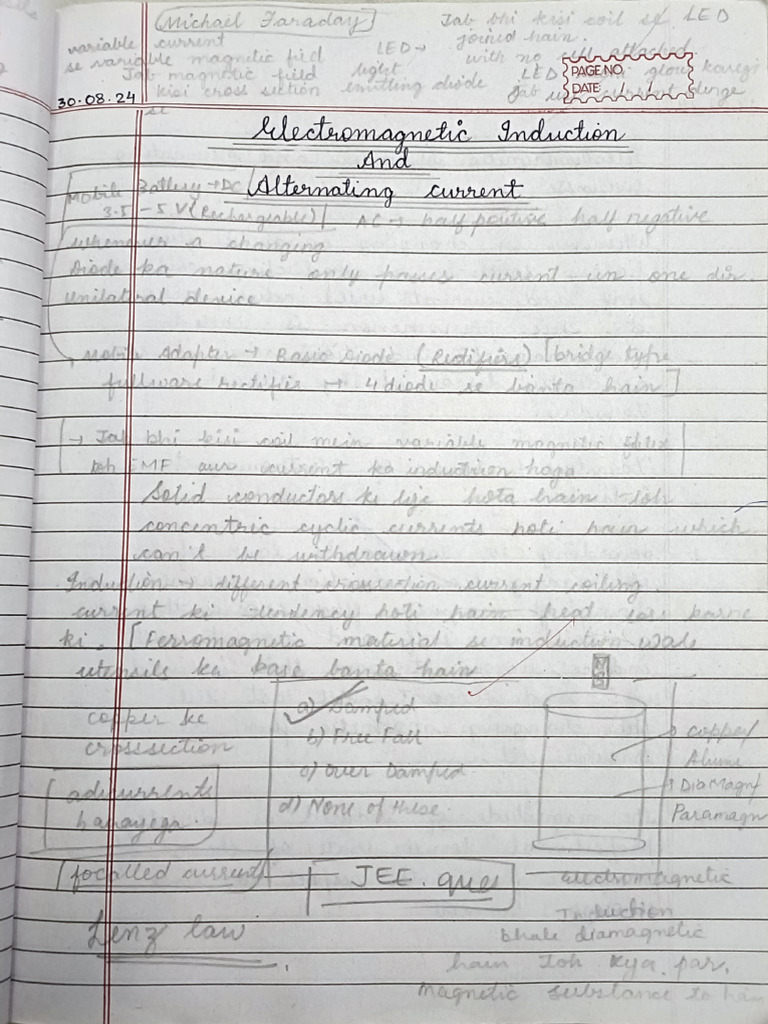 [Michael Faraday]
Jab bhi kisi coil se LED
joined hain.
with no cell attached.
variable current
se variable magnetic field
Jab magnetic field
kisi cross section
se
LED →
light
emitting diode
LED glow karegi
Jab
PAGE NO.
DATE: / /
30.08.24
Electromagnetic Induction
And
Alternating current
Mobile Battery → DC
3.5 - 5 V (Rechargeable)
AC → half positive half negative
whenever a changing
Diode ka nature only passes current in one dir.
unilateral device
Mobile Adapter → Basic Diode (Rectifiers) [bridge type
fullwave rectifier → 4 diode se banta hain]
→ Jab bhi kisi coil mein variable magnetic
toh EMF aur current ka induction hoga
Solid conductors ke liye hota hain toh
concentric cyclic currents hoti hain which
can't be withdrawn.
Induction → different crosssection current coiling
current ki tendency hoti hain heat loss karne
ki. [Ferromagnetic material se induction wale
utensils ka base banta hain
copper ke
crosssection
a) Damped
b) Free Fall
c) Over Damped
d) None of these.
copper/
Alumi
DiaMagn/
Paramagn
hapayega
JEE. ques
Lenz law
electromagnetic
Induction
bhale diamagnetic
hain toh kya par,
magnetic substance to hain